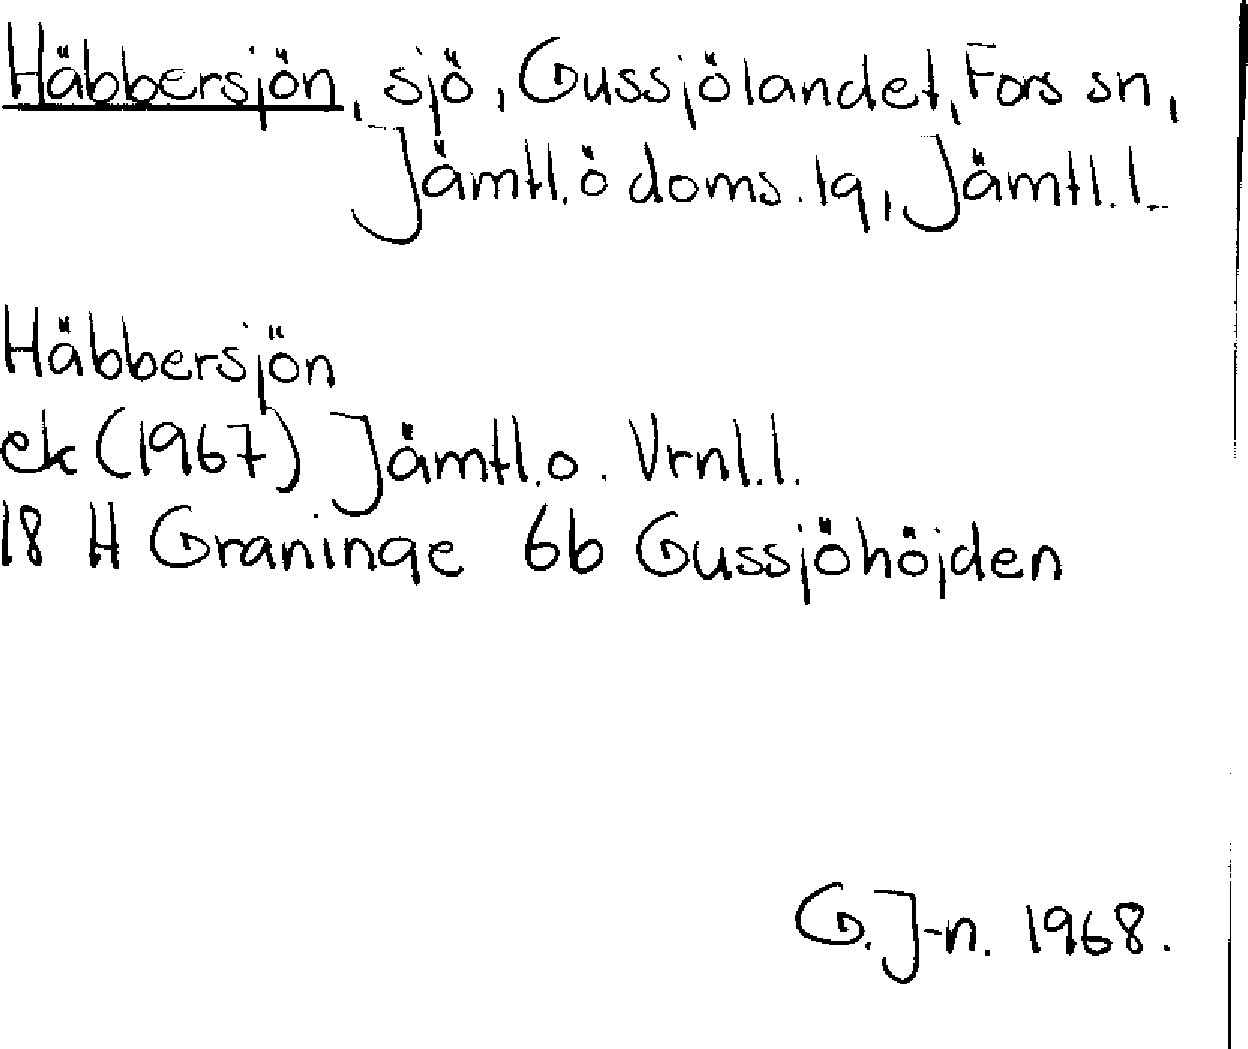 Häbbersjön, sjö, Gussjölandet, Fors sn,
Jämtl. ö doms. lg, Jämtl. l.
Häbbersjön
ek (1967) Jämtl. o. Vrnl. l.
18 H Graninge 6b Gussjöhöjden
G. J-n. 1968.